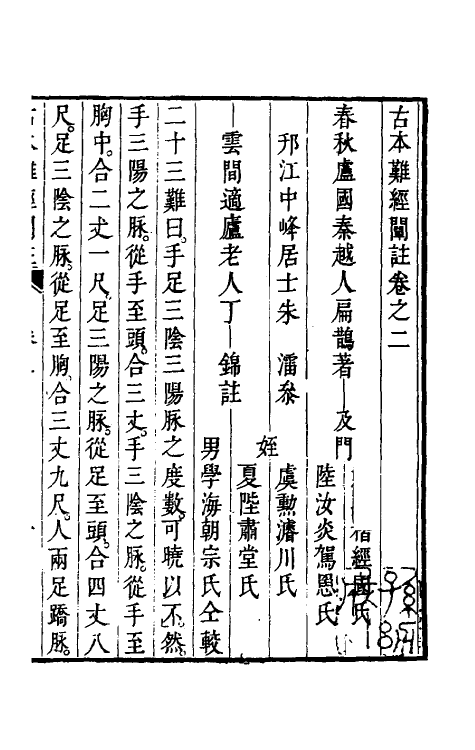 古本難經闡註卷之二
春秋盧國秦越人扁鵲著 及門
經國氏
陸汝炎駕恩氏
邗江中峰居士朱 㵎叅
姪
虞勳濬川氏
夏陛肅堂氏
雲間適廬老人丁 錦註
男學海朝宗氏仝較
二十三難曰。手足三陰三陽脉之度數。可曉以不。然
手三陽之脉。從手至頭。合三丈。手三陰之脉。從手至
胸中。合二丈一尺。足三陽之脉。從足至頭。合四丈八
尺。足三陰之脉。從足至胸。合三丈九尺。人兩足蹻脉。